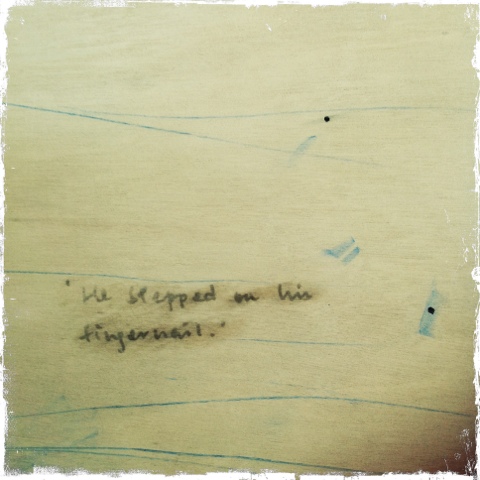 'He stepped on his
fingernail.'